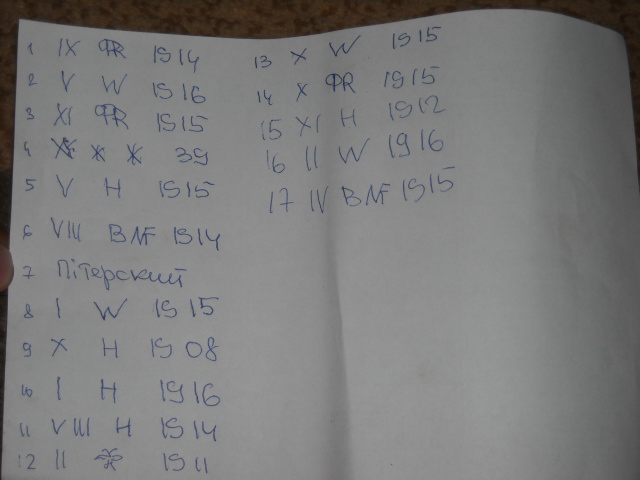 1 IX ФR 1914
2 V W 1916
3 XI ФR 1915
4 39
5 V H 1915
6 VIII BNF 1914
7 Пітерский
8 I W 1915
9 X H 1908
10 I H 1916
11 VIII H 1914
12 II 1911
13 X W 1915
14 X ФR 1915
15 XI H 1912
16 II W 1916
17 IV BNF 1915